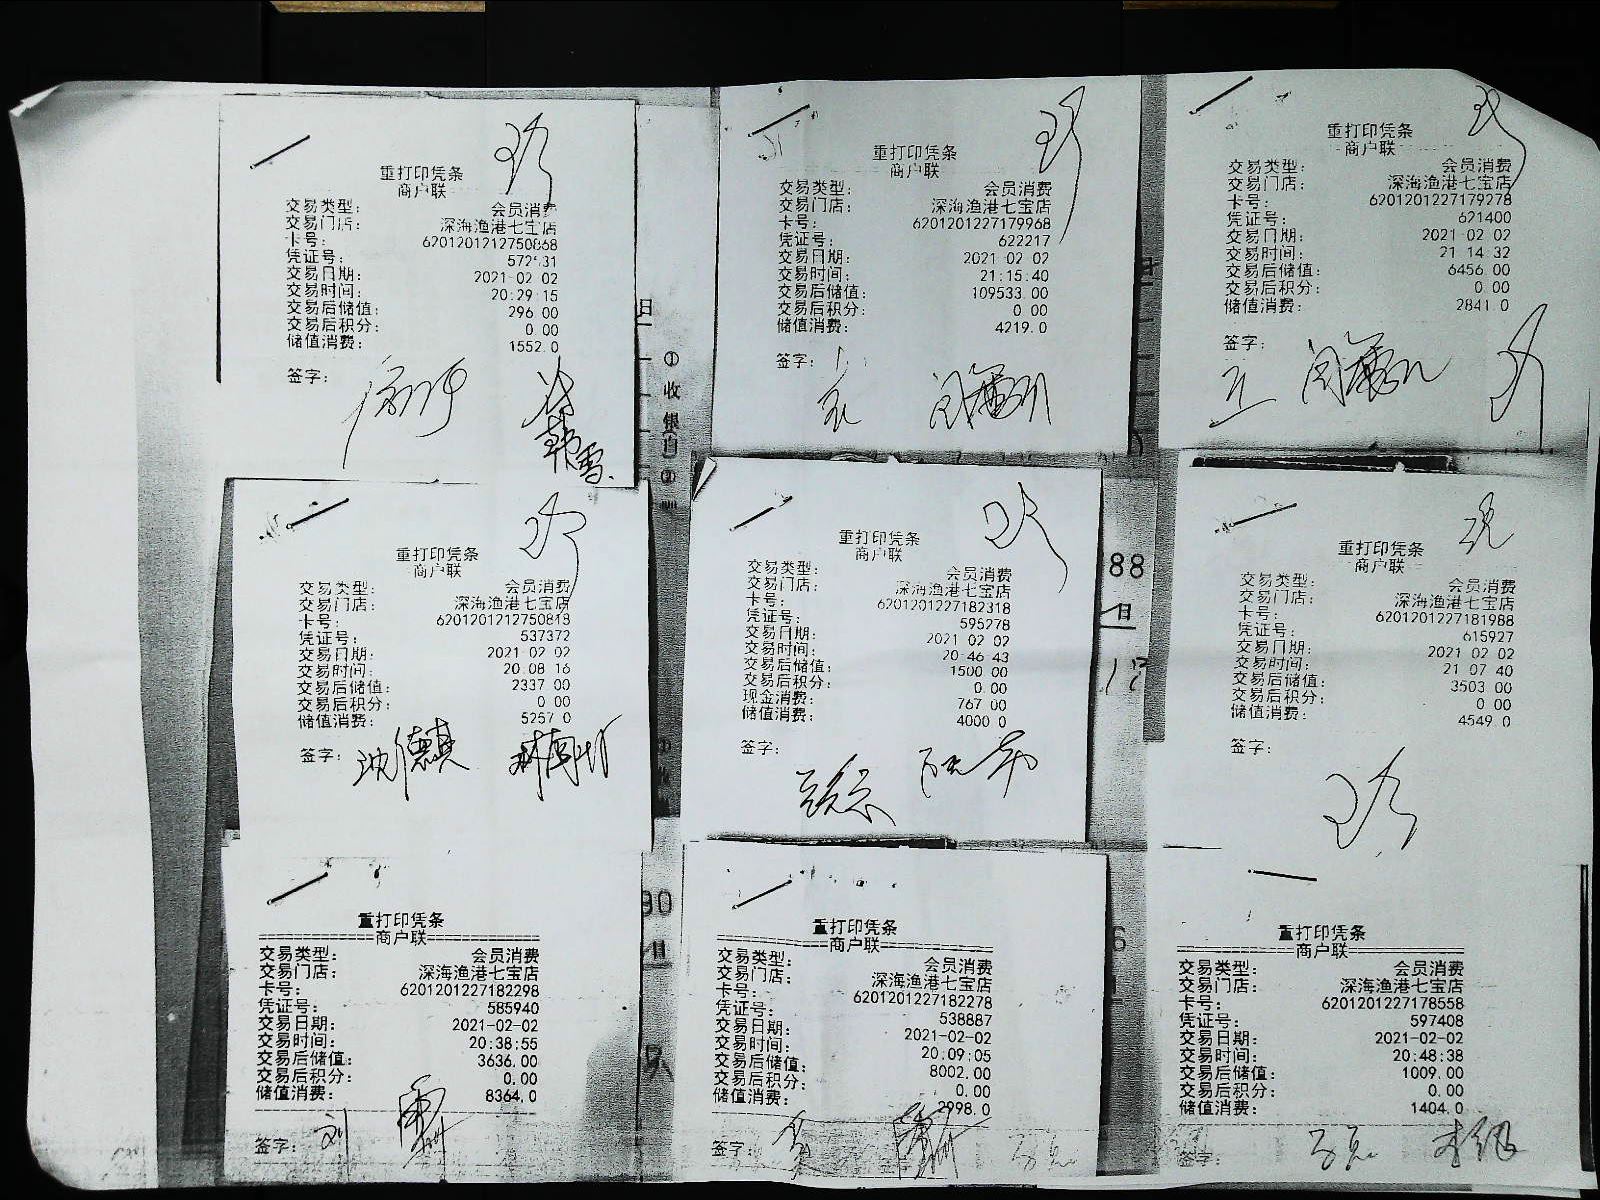 重打印凭条
商户联
交易类型： 会员消费
交易门店： 深海渔港七宝店
卡号： 6201201212750868
凭证号：
交易日期： 2021-02-02
交易时间： 20:29:15
交易后储值： 296.00
交易后积分： 0.00
储值消费： 1552.0
签字：
韩雪
重打印凭条
商户联
交易类型： 会员消费
交易门店： 深海渔港七宝店
卡号： 6201201227179968
凭证号： 622217
交易日期： 2021-02-02
交易时间： 21:15:40
交易后储值： 109533.00
交易后积分： 0.00
储值消费： 4219.0
签字：
重打印凭条
商户联
交易类型： 会员消费
交易门店： 深海渔港七宝店
卡号： 6201201227179278
凭证号： 621400
交易日期： 2021-02-02
交易时间： 21:14:32
交易后储值： 6456.00
交易后积分： 0.00
储值消费： 2841.0
签字：
日
①
收
银
重打印凭条
商户联
交易类型： 会员消费
交易门店： 深海渔港七宝店
卡号： 6201201212750818
凭证号： 537372
交易日期： 2021-02-02
交易时间： 20:08:16
交易后储值： 2337.00
交易后积分： 0.00
储值消费： 5257.0
签字： 沈德真
重打印凭条
商户联
交易类型： 会员消费
交易门店： 深海渔港七宝店
卡号： 6201201227182318
凭证号： 595278
交易日期： 2021-02-02
交易时间： 20:46:43
交易后储值： 1500.00
交易后积分： 0.00
现金消费： 767.00
储值消费： 4000.0
签字：
88
日
重打印凭条
商户联
交易类型： 会员消费
交易门店： 深海渔港七宝店
卡号： 6201201227181988
凭证号： 615927
交易日期： 2021-02-02
交易时间： 21:07:40
交易后储值： 3503.00
交易后积分： 0.00
储值消费： 4549.0
签字：
重打印凭条
================商户联================
交易类型： 会员消费
交易门店： 深海渔港七宝店
卡号： 6201201227182298
凭证号： 585940
交易日期： 2021-02-02
交易时间： 20:38:55
交易后储值： 3636.00
交易后积分： 0.00
储值消费： 8364.0
签字： 刘
重打印凭条
================商户联================
交易类型： 会员消费
交易门店： 深海渔港七宝店
卡号： 6201201227182278
凭证号： 538887
交易日期： 2021-02-02
交易时间： 20:09:05
交易后储值： 8002.00
交易后积分： 0.00
储值消费： 2998.0
签字：
重打印凭条
================商户联================
交易类型： 会员消费
交易门店： 深海渔港七宝店
卡号： 6201201227178558
凭证号： 597408
交易日期： 2021-02-02
交易时间： 20:48:38
交易后储值： 1009.00
交易后积分： 0.00
储值消费： 1404.0
签字：